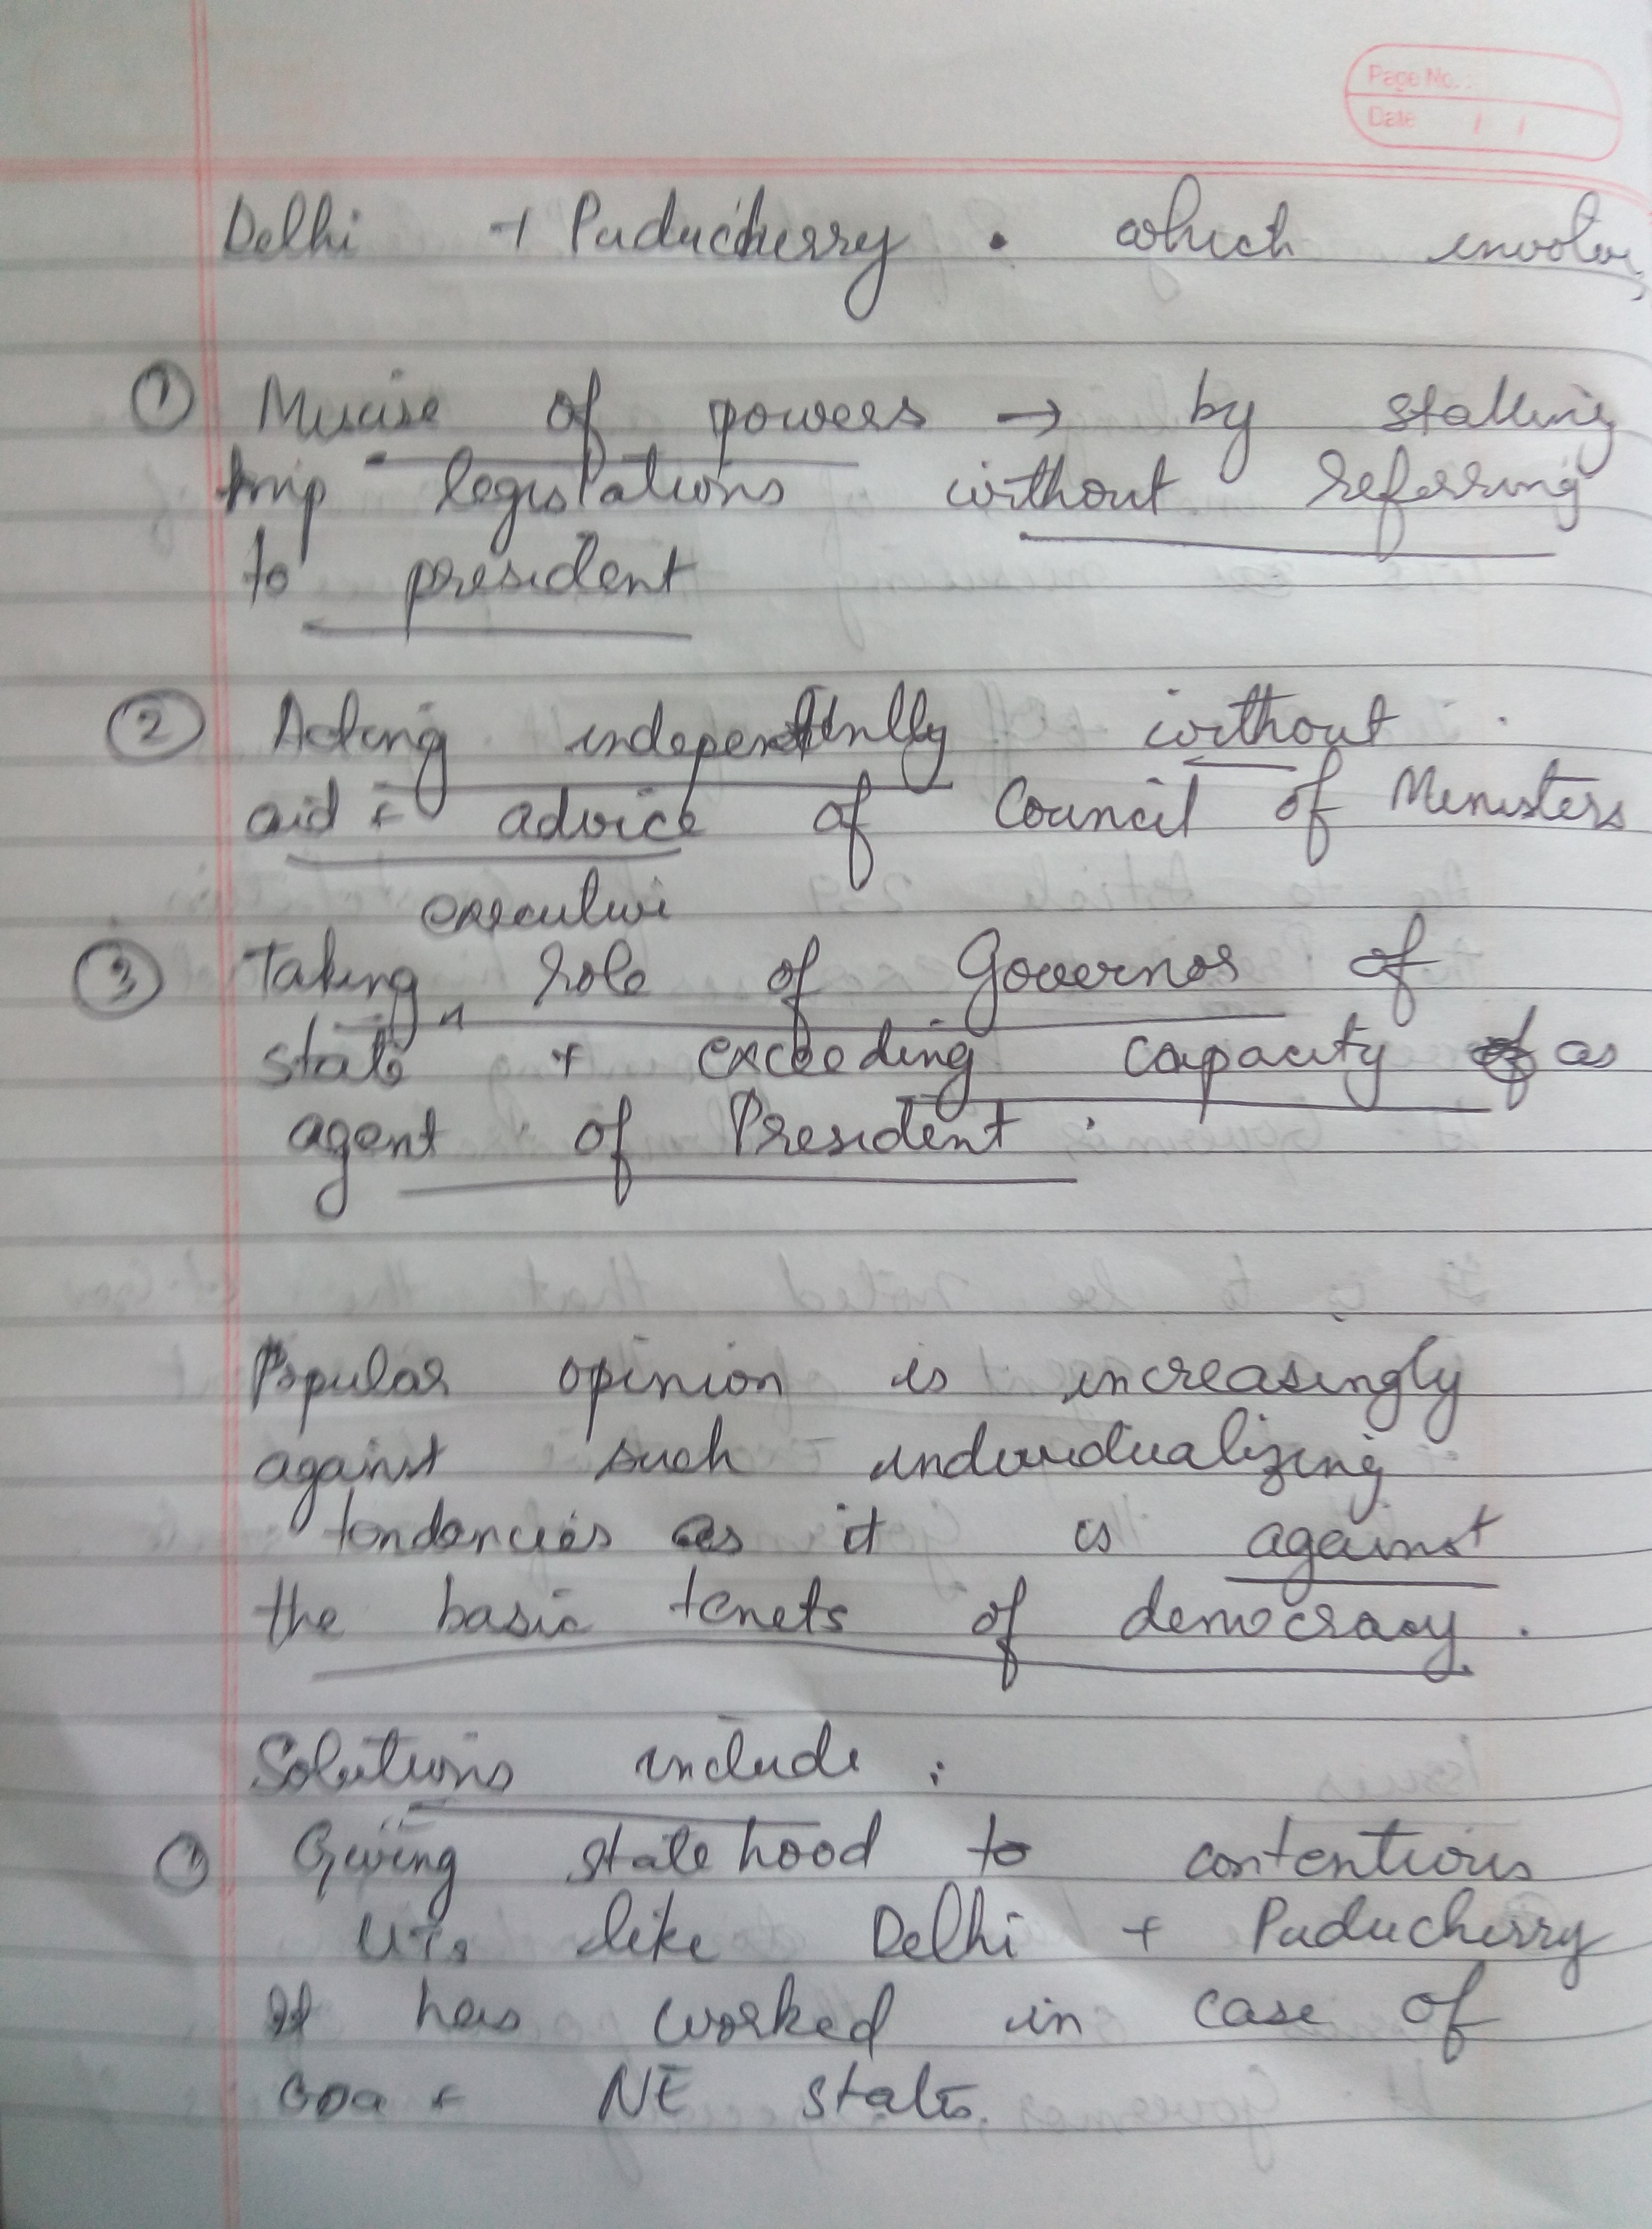 Page No.
Date / /
Delhi + Puducherry. which involve,
① Misuse of powers → by stalling
imp legislations without referring
to president
② Acting independently without
aid + advice of Council of Ministers
executive
③ Taking role of Governor of
state + exceeding capacity as
agent of President.
Popular opinion is increasingly
against such individualizing
tendencies as it is against
the basic tenets of democracy.
Solutions include :
① Giving statehood to contentious
UTs like Delhi + Puducherry
It has worked in case of
Goa + NE states.